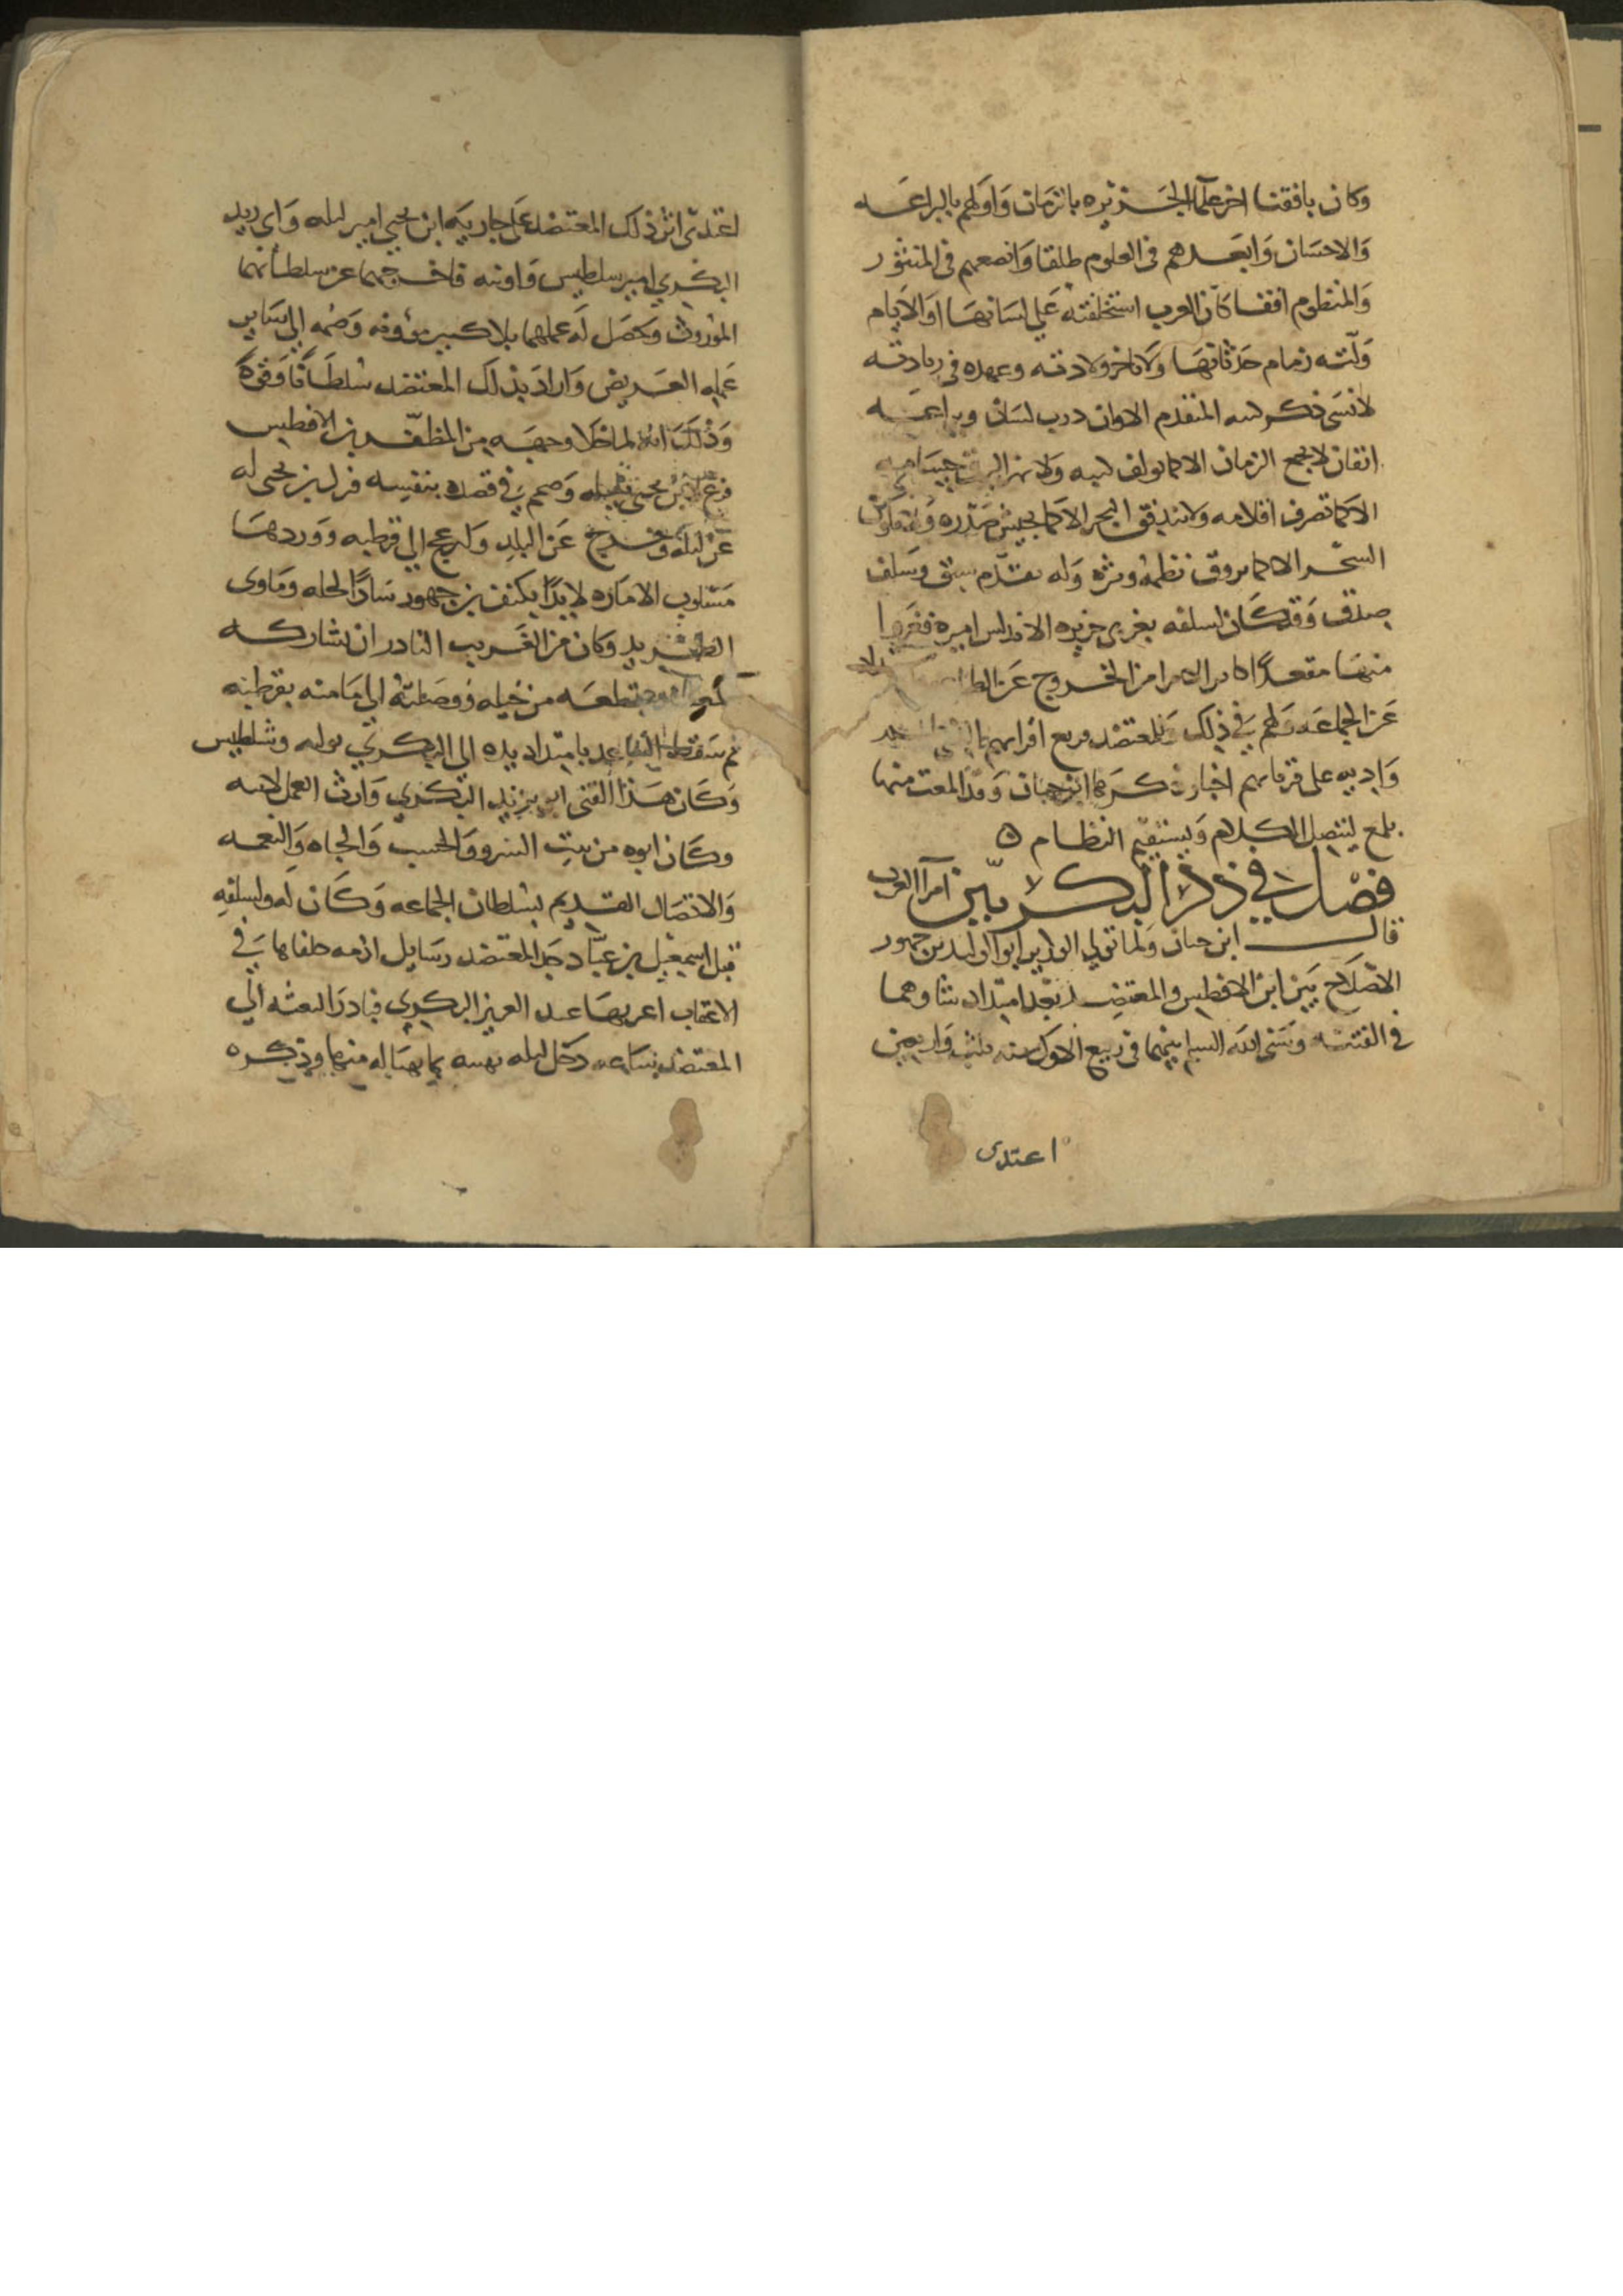 وكان بافقنا اخر علما الجزيره بالزمان واولهم بالبراعه
والاحسان وابعدهم في العلوم طلقا وانصعهم في المنثور
والمنظوم افقا كان العرب استخلفته على لسانها او الايام
ولته زمام حدثانها ولا تاخر ولادته وعهده في زيادته
لانسى ذكر المتقدم الاوان درب لسان وبراعه
اتقان لا يجمع الزمان الا كما يولف ولا
الا كما تصرف اقلامه ولا يتدفق البحر الا كما يجيش صدره
السحر الا كما يروق نظمه ونثره وله تقدم سبق وسلف
صدق وقد كان لسلفه بغربي جزيره الاندلس اميره
منها مقعد اكابر الامرا من الخروج عن
عن الجماعه ولهم في ذلك وللمعتضد مع
وابيه على اخبار ذكرها ابن حيان وقد المعت منها
بلمع ليتصل الكلام ويستقيم النظام ه
فصل في ذكر البكريين امرآ الغرب
قال ابن حيان ولما تولي الوزير ابو الوليد بن جهور
الاصلاح بين ابن الافطس والمعتضد بعد امتداد شاوهما
في الفتنه وسنى الله السلم بينهما في ربيع الاول سنه ثلث واربعين
اعتدى
اعتدى اثر ذلك المعتضد على جاريه ابن يحيى امير لبله وابي زيد
البكري امير سلطيس واونبه فاخرجهما عن سلطانهما
الموروث وحصل له عملهما بلا كبير مؤونه وضمه الي ساير
عمله العريض وازاد بذلك المعتضد سلطانا وقوة
وذلك انه لما خلا وجهه من المظفر بن الافطس
فرغ لابن يحيى وصمم في قصده بنفسه فنزل بن يحيى له
عن لبله وخرج عن البلد ولم يرعج الي قرطبه ووردها
مسلوب الاماره لايذا بكنف بن جهور ساد الخله وماوى
الطريد وكان من الغريب النادر ان شاركه
بقطعه من خيله اوصلته الي مامنه بقرطبه
ثم سقط بامتداد يده الى البكري بولبه وشلطيس
وكان هذا الفتى ابو زيد البكري وارث العمل لابيه
وكان ابوه من بيت السرو والحسب والجاه والنعمه
والاتصال القديم بسلطان الجماعه وكان له ولسلفه
قبل اسمعيل بن عباد جد المعتضد رسايل اذمه خلفاها في
الاعقاب اغتر بها عبد العزيز البكري فبادر البعثه الي
المعتضد بساعه دخل لبله يهنيه بما تهيا له منها وذكره